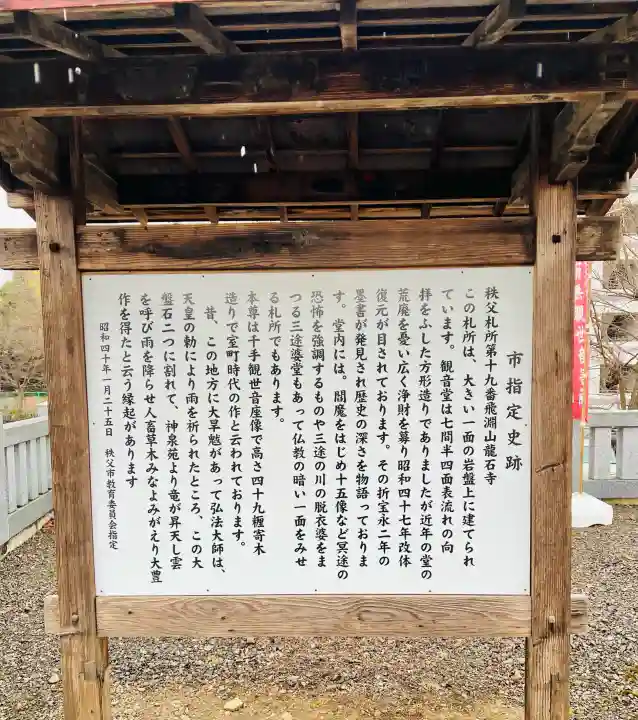 市指定史跡
秩父札所第十九番飛淵山龍石寺
この札所は、大きい一面の岩盤上に建てられ
ています。観音堂は七間半四面表流れの向
拝をふした方形造りでありましたが近年の堂の
荒廃を憂い広く浄財を募り昭和四十七年改体
復元が目されております。その折宝永二年の
墨書が発見され歴史の深さを物語っておりま
す。堂内には。閻魔をはじめ十五像など冥途の
恐怖を強調するものや三途の川の脱衣婆をま
つる三途婆堂もあって仏教の暗い一面をみせ
る札所でもあります。
本尊は千手観世音座像で高さ四十九糎寄木
造りで室町時代の作と云われております。
昔、この地方に大旱魃があって弘法大師は、
天皇の勅により雨を祈られたところ、この大
盤石二つに割れて、神泉苑より竜が昇天し雲
を呼び雨を降らせ人畜草木みなよみがえり大豊
作を得たと云う縁起があります
昭和四十年一月二十五日 秩父市教育委員会指定
観世音